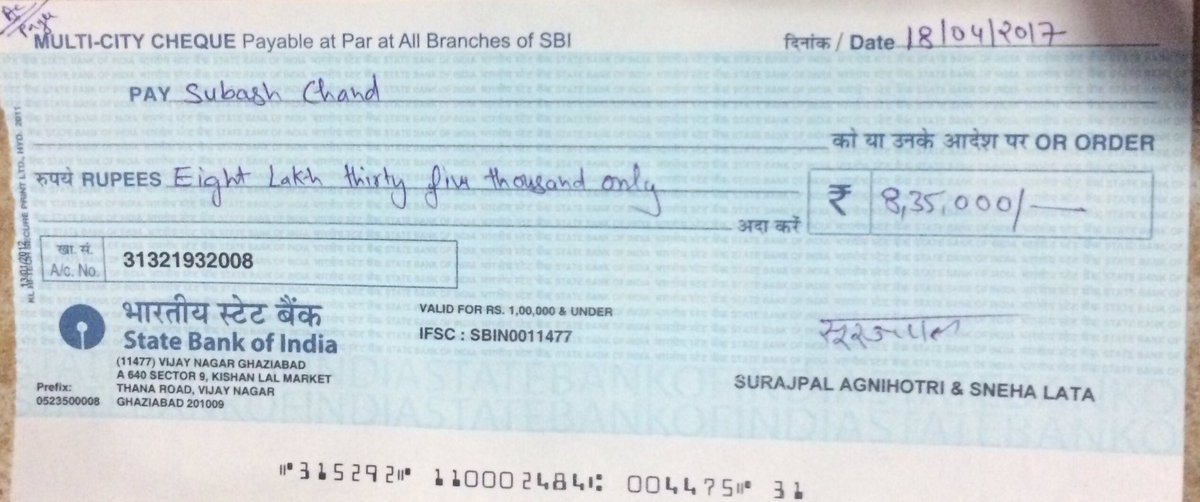 Ac/Payee
MULTI-CITY CHEQUE Payable at Par at All Branches of SBI
दिनांक / Date 18/04/2017
PAY Subash Chand
को या उनके आदेश पर OR ORDER
रुपये RUPEES Eight Lakh thirty five thousand only
अदा करें
₹ 8,35,000/-
खा. सं.
A/c. No.
31321932008
भारतीय स्टेट बैंक
State Bank of India
(11477) VIJAY NAGAR GHAZIABAD
A 640 SECTOR 9, KISHAN LAL MARKET
THANA ROAD, VIJAY NAGAR
GHAZIABAD 201009
Prefix:
0523500008
VALID FOR RS. 1,00,000 & UNDER
IFSC : SBIN0011477
सूरजपाल
SURAJPAL AGNIHOTRI & SNEHA LATA
⑈315292⑈ 110002484⑆ 004475⑈ 31